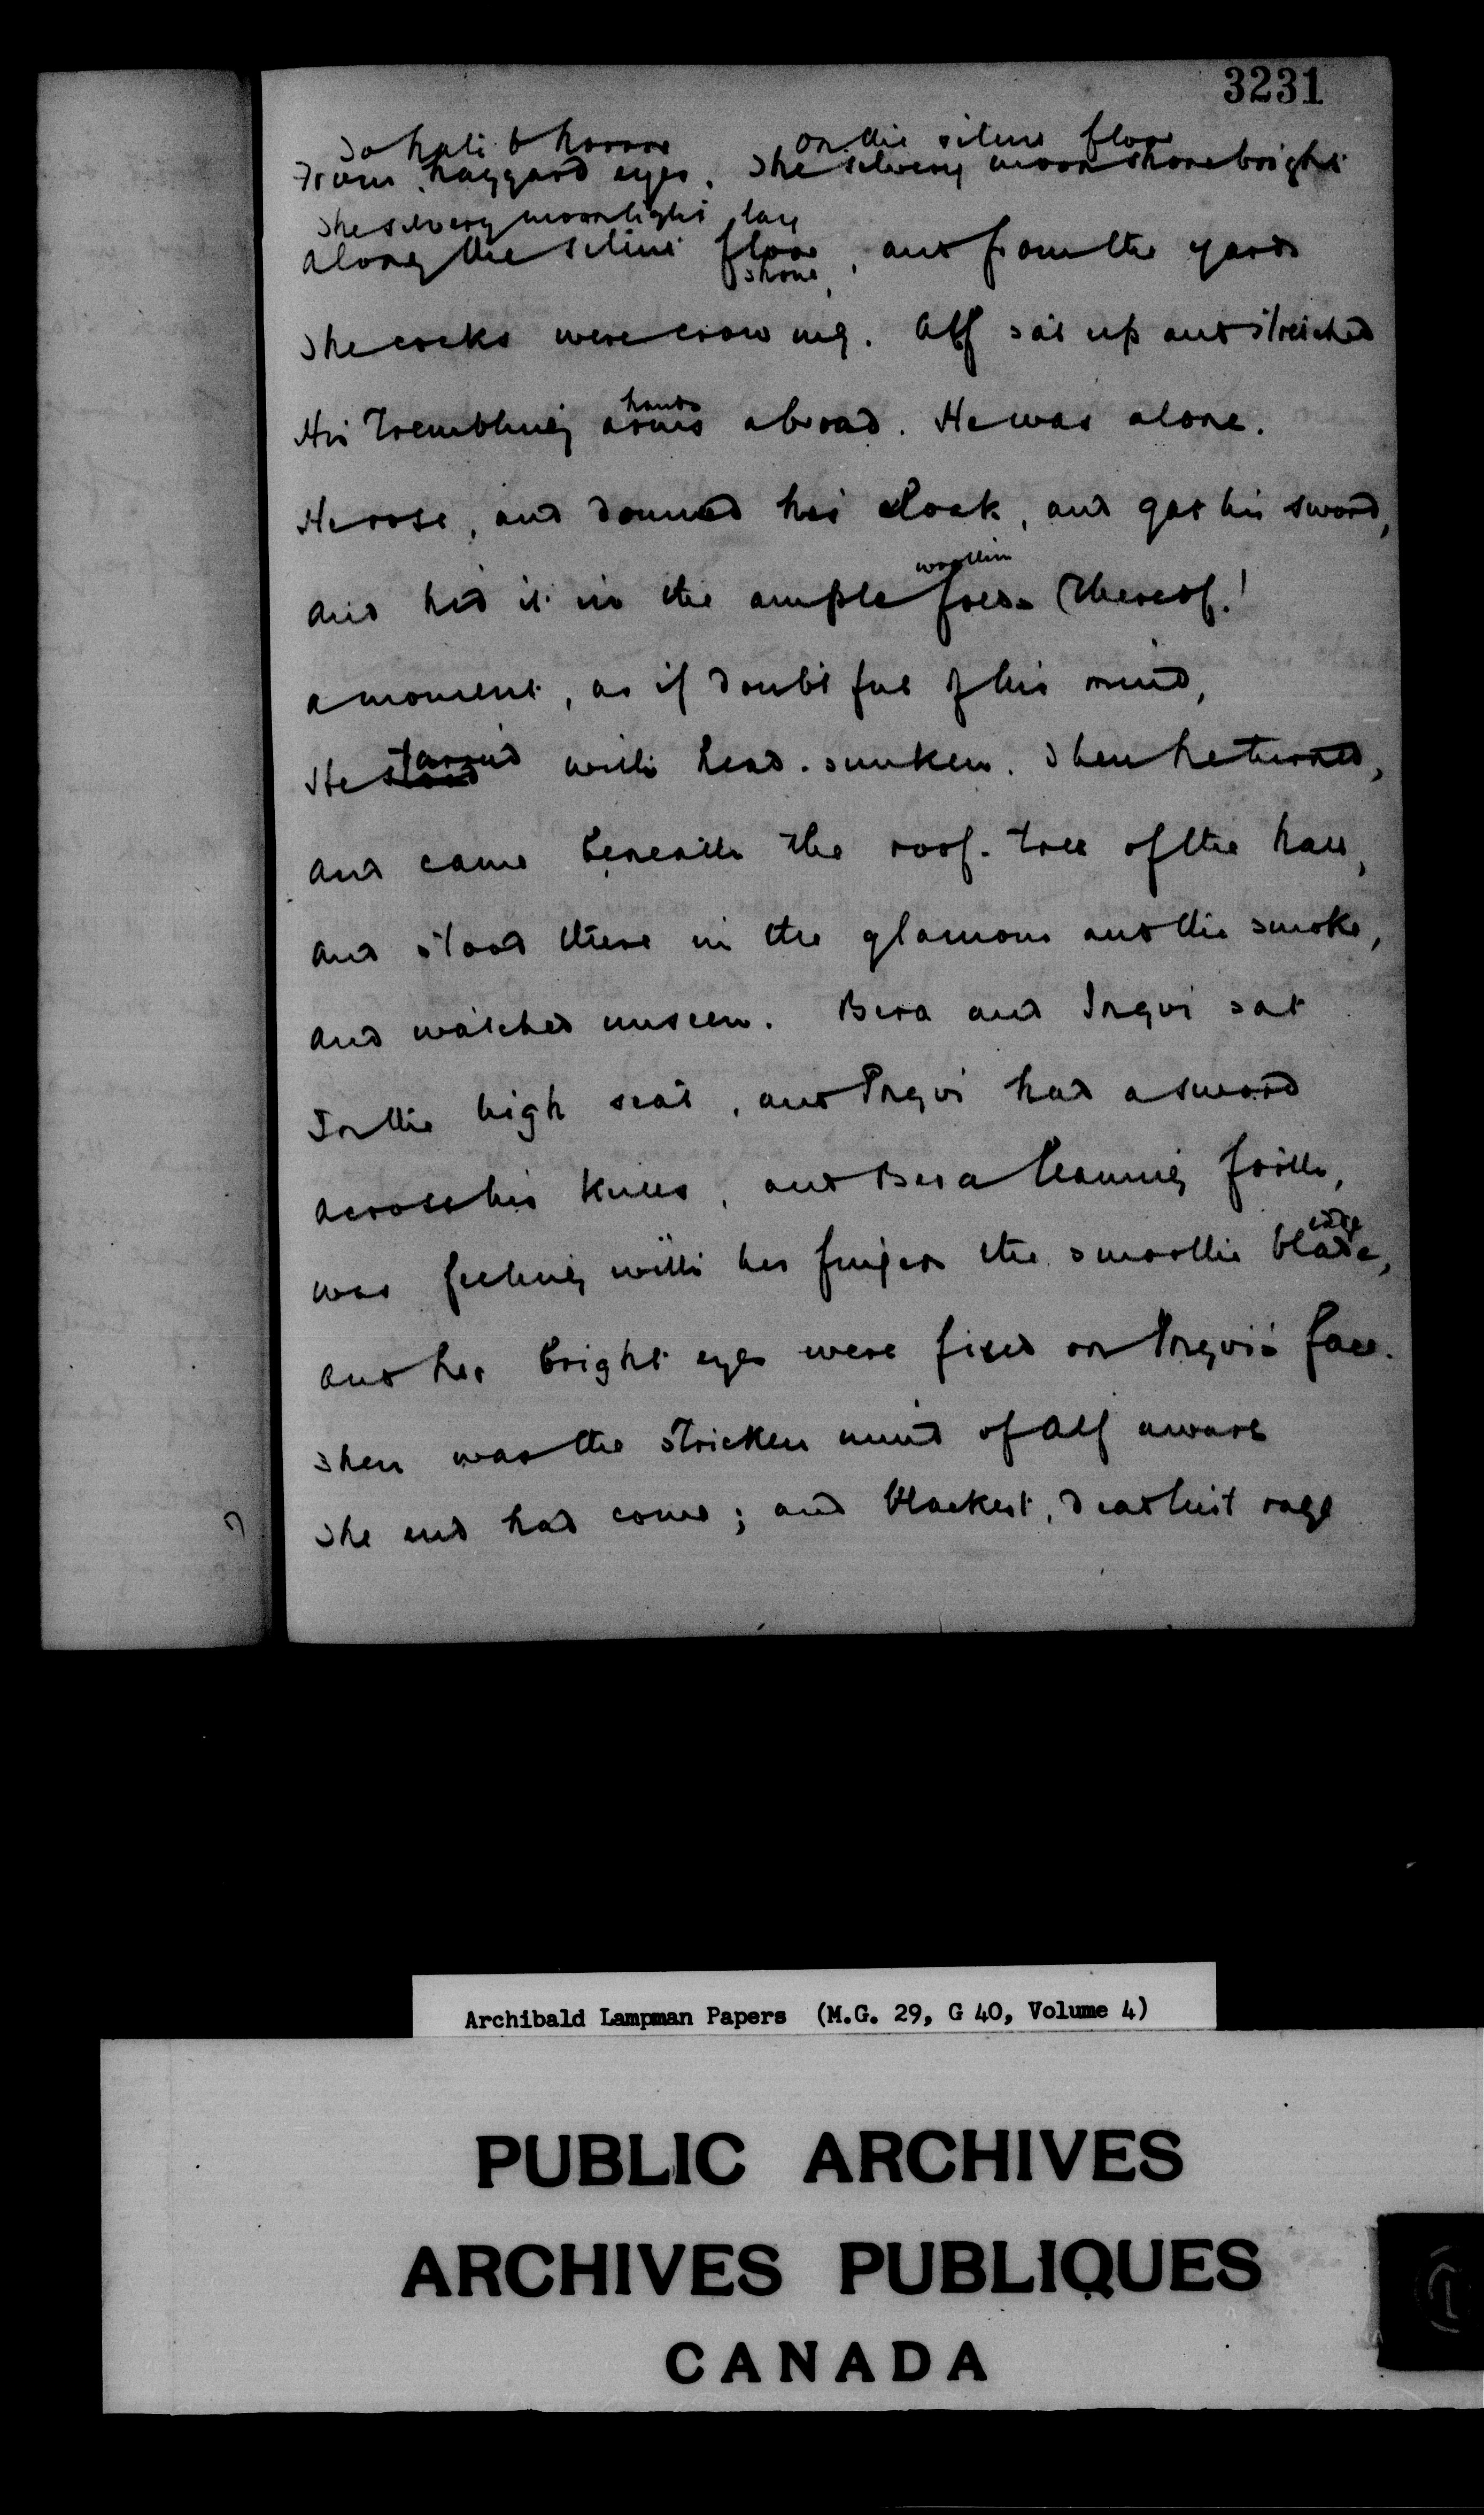 3231
To hate & horror on the silent floor
From haggard eyes. The silvery moon shone bright
The silvery moonlight lay
Along the silent floor, and from the yards
shone,
The cocks were crowing. Alf sat up and stretched
hands
His trembling arms abroad. He was alone.
He rose, and donned his cloak, and got his sword,
woollen
And hid it in the ample folds thereof.
A moment, as if doubtful of his mind,
tarried
He stood with head sunken. Then he turned,
And came beneath the roof-tree of the hall,
And stood there in the glamour and the smoke,
And watched unseen. Bera and Ingvi sat
In the high seat, and Ingvi had a sword
Across his knees, and Bera leaning forth,
edge
Was feeling with her fingers the smooth blade,
And her bright eyes were fixed on Ingvi's face.
Then was the stricken mind of Alf aware
The end had come; and blackest, deadliest rage
Archibald Lampman Papers (M.G. 29, G 40, Volume 4)
PUBLIC ARCHIVES
ARCHIVES PUBLIQUES
CANADA